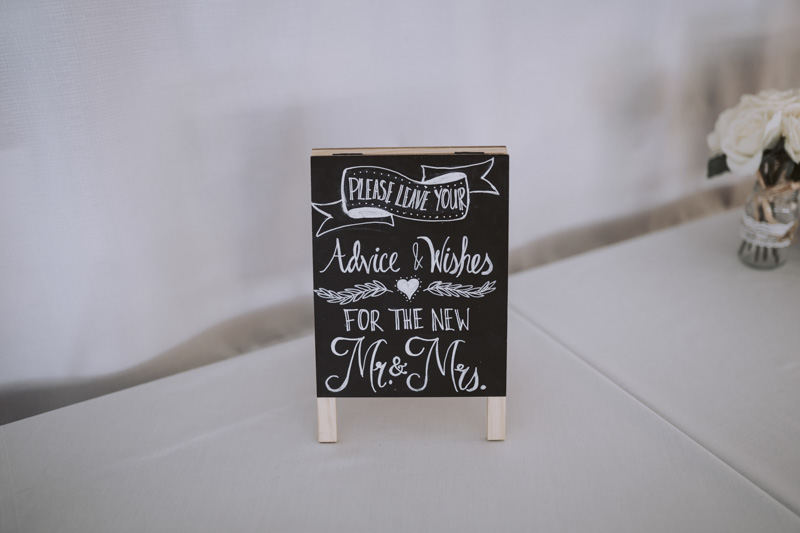 PLEASE LEAVE YOUR
Advice & Wishes
FOR THE NEW
Mr. & Mrs.